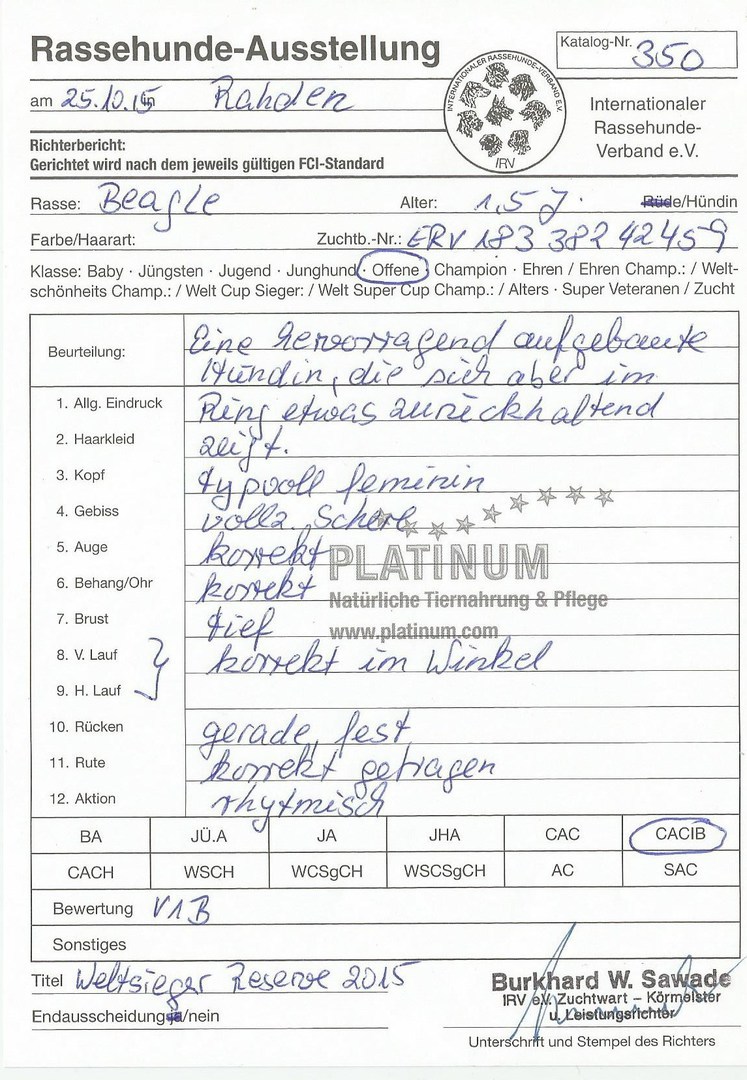 Rassehunde-Ausstellung
Katalog-Nr. 350
am 25.10.15 in Rahden
INTERNATIONALER RASSEHUNDE-VERBAND E.V.
IRV
Internationaler
Rassehunde-
Verband e.V.
Richterbericht:
Gerichtet wird nach dem jeweils gültigen FCI-Standard
Rasse: Beagle Alter: 1,5 J. Rüde/Hündin
Farbe/Haarart: Zuchtb.-Nr.: ERV 183 382 42459
Klasse: Baby · Jüngsten · Jugend · Junghund · Offene · Champion · Ehren / Ehren Champ.: / Welt-
schönheits Champ.: / Welt Cup Sieger: / Welt Super Cup Champ.: / Alters · Super Veteranen / Zucht
Beurteilung: Eine hervorragend aufgebaute
Hündin, die sich aber im
1. Allg. Eindruck Ring etwas zurückhaltend
2. Haarkleid zeigt.
3. Kopf typvoll feminin
4. Gebiss vollz. Schere
5. Auge korrekt
PLATINUM
6. Behang/Ohr korrekt
Natürliche Tiernahrung & Pflege
7. Brust tief
www.platinum.com
8. V. Lauf korrekt im Winkel
9. H. Lauf
10. Rücken gerade, fest
11. Rute korrekt getragen
12. Aktion rhytmisch
BA JÜ.A JA JHA CAC CACIB
CACH WSCH WCSgCH WSCSgCH AC SAC
Bewertung V1B
Sonstiges
Titel Weltsieger Reserve 2015
Burkhard W. Sawade
IRV e.V. Zuchtwart – Körmeister
u. Leistungsrichter
Endausscheidung ja/nein
Unterschrift und Stempel des Richters